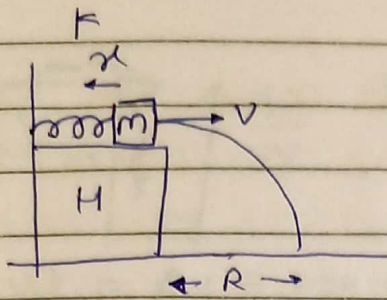 K
x
m
V
H
R